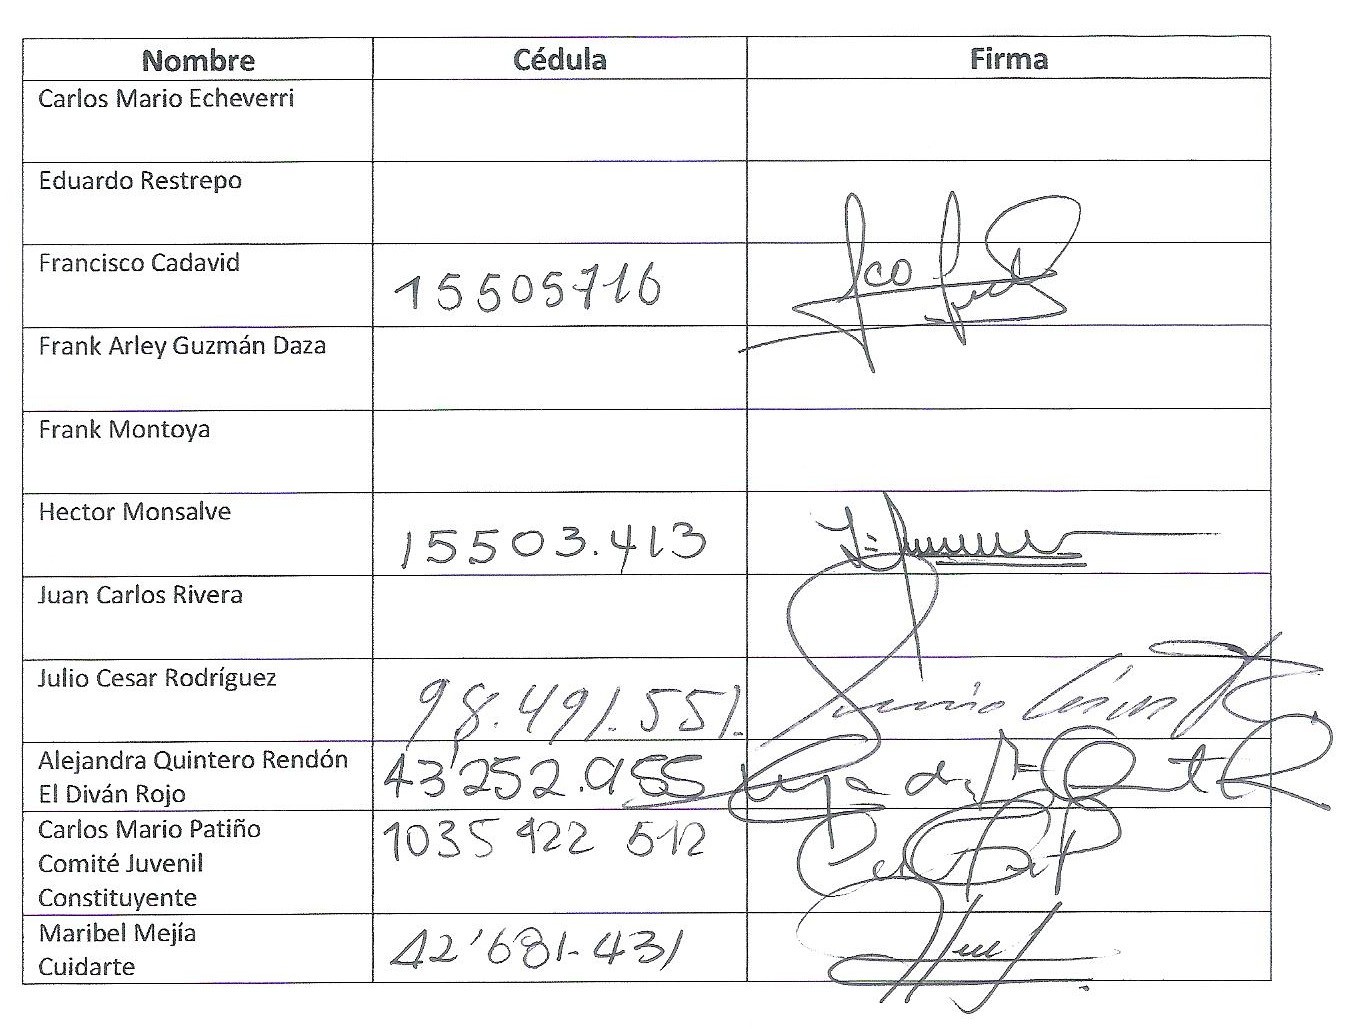 Nombre Cédula Firma
Carlos Mario Echeverri
Eduardo Restrepo
Francisco Cadavid 15505716
Frank Arley Guzmán Daza
Frank Montoya
Hector Monsalve 15503.413
Juan Carlos Rivera
Julio Cesar Rodríguez 98.491.551.
Alejandra Quintero Rendón 43'252.955
El Diván Rojo
Carlos Mario Patiño 1035 922 512
Comité Juvenil
Constituyente
Maribel Mejía 42'681-431
Cuidarte